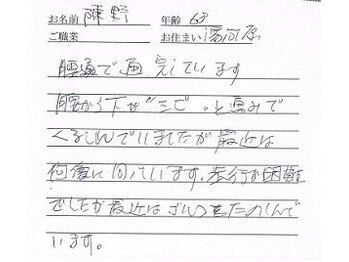 お名前 陳野 年齢 63
ご職業 お住まい 湯河原
腰痛で通院しています
腰から下が"シビ"と痛みで
くるしんでいましたが最近は
回復に向っています。歩行が困難
でしたが最近は をたのしんで
います。